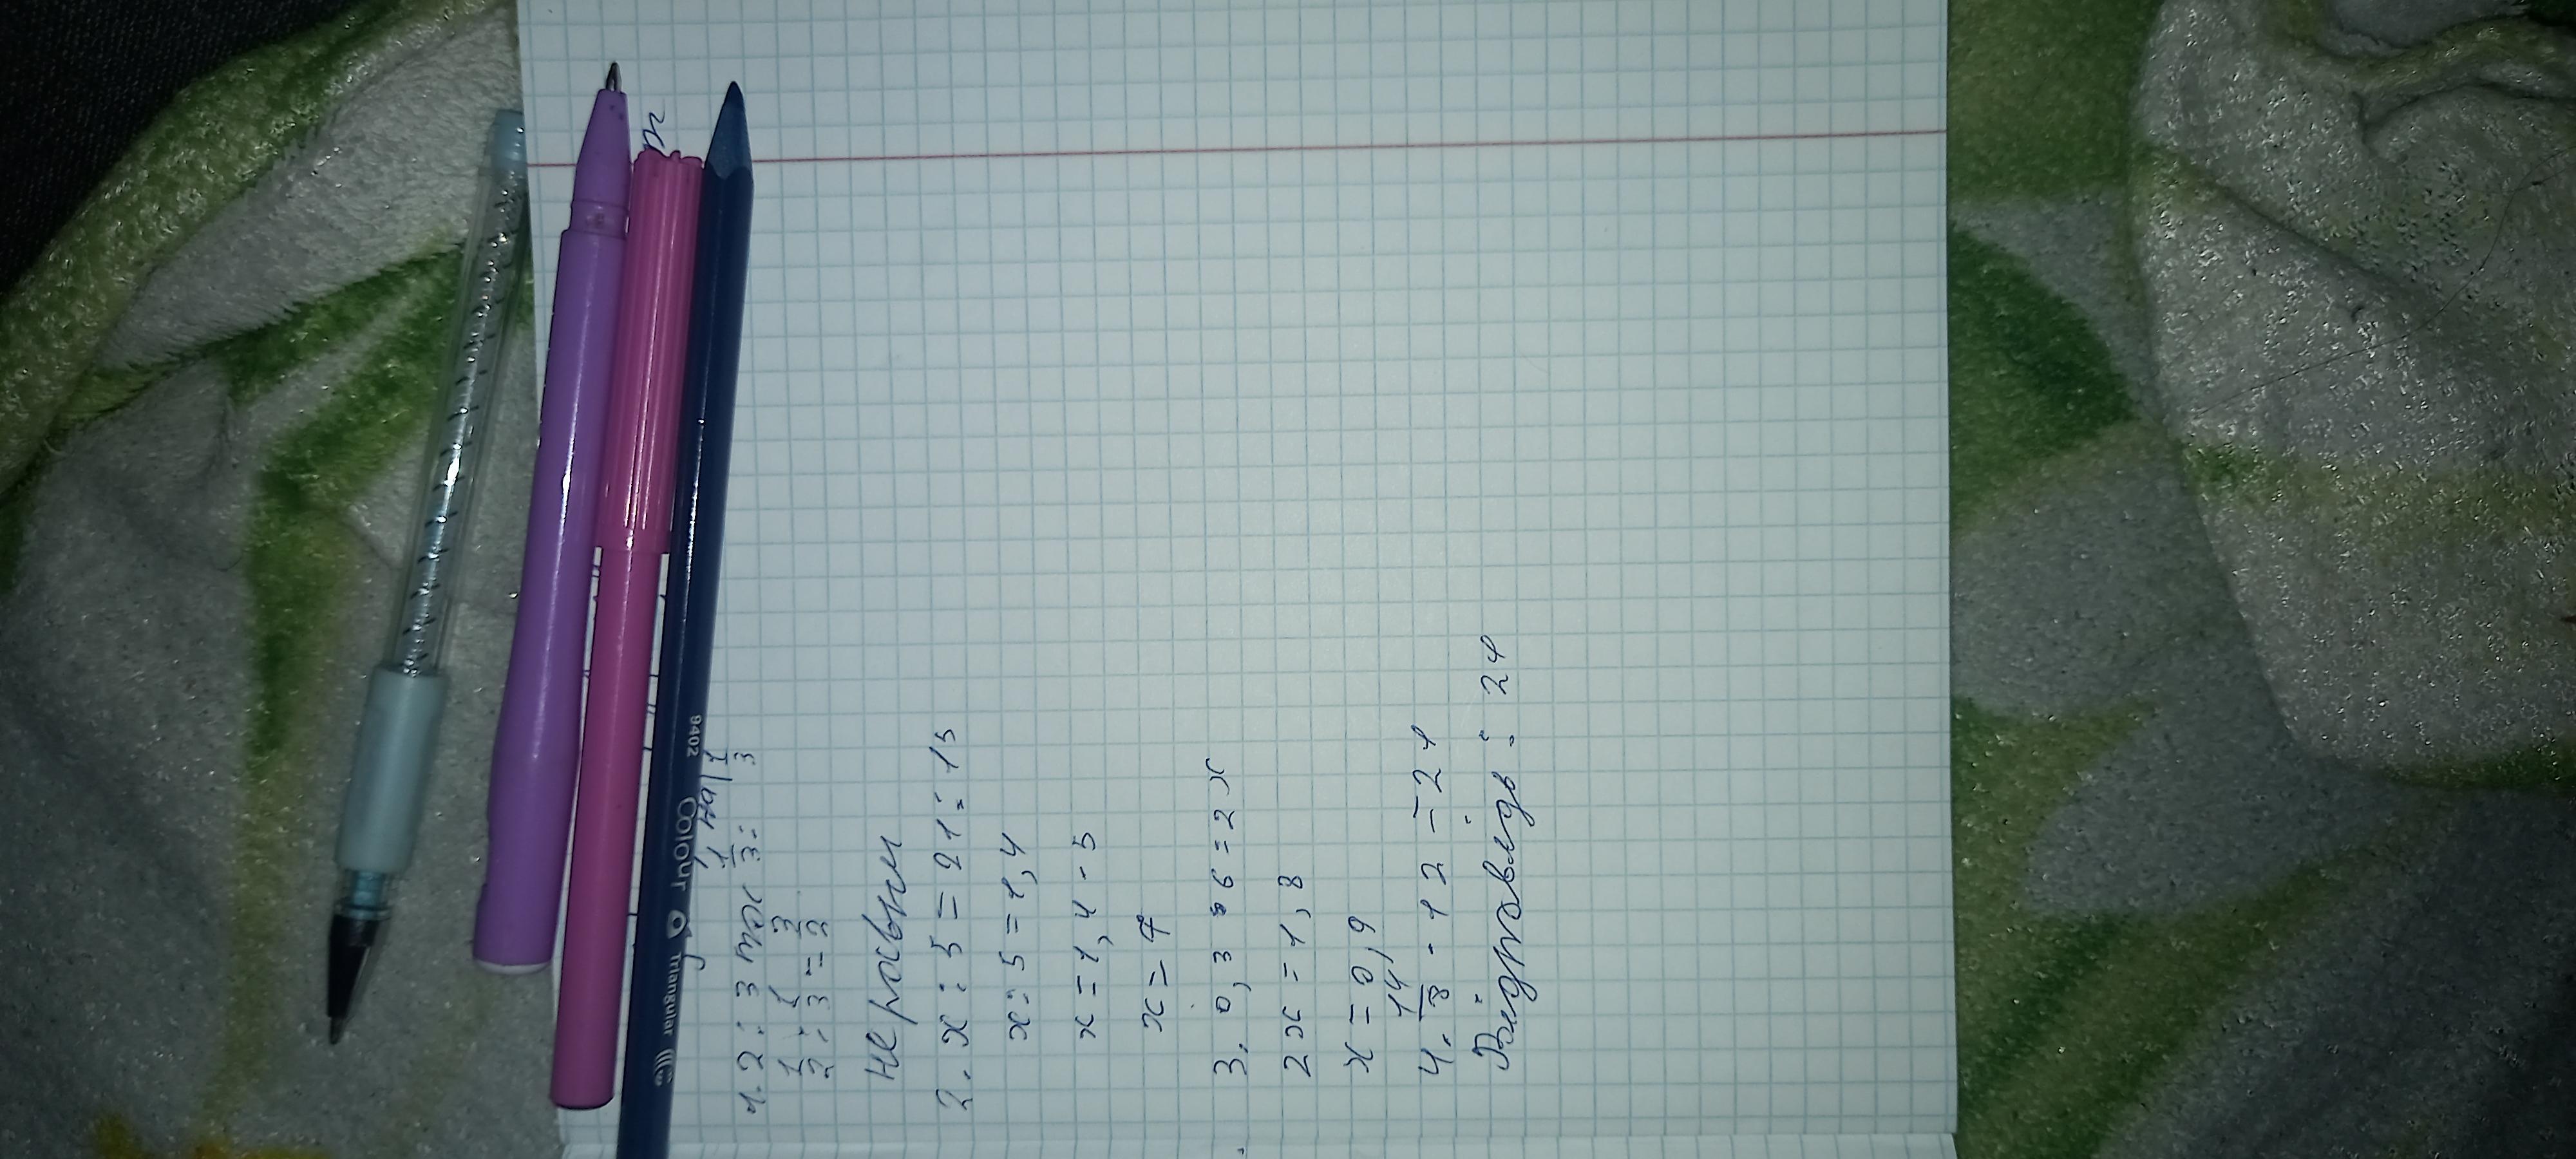 Colour Triangular 9402
1. 2 : 3 та 1/3 : 1/3
1/2 : 1/3 = 3/2
не рівні
2. x : 5 = 21 : 15
x : 5 = 1,4
x = 1,4 · 5
x = 7
3. 0,3 · 6 = 2x
2x = 1,8
x = 0,9
4. 14/8 · 12 = 21
Відповідь : 21